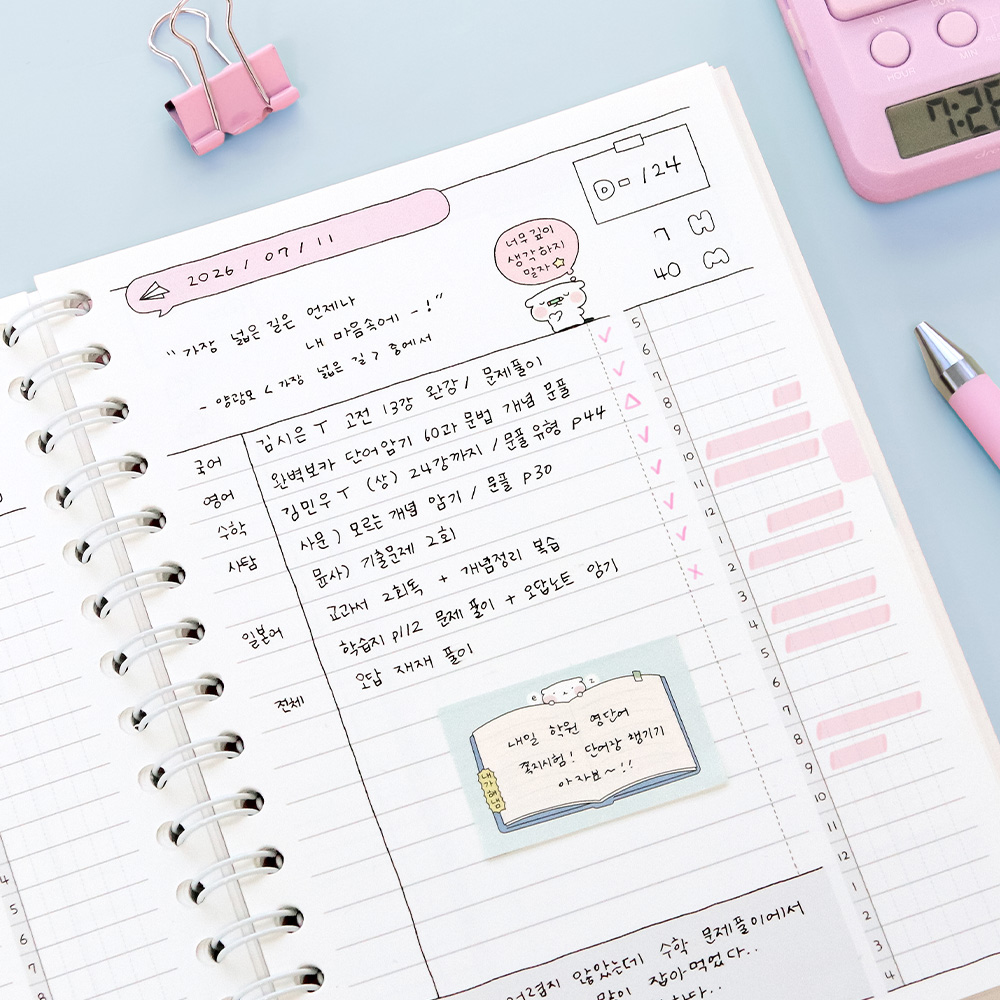 2026 / 07 / 11
D - 124
7 H
40 M
너무 깊이
생각하지
말자
"가장 넓은 길은 언제나
내 마음속에 - !"
- 양광모 < 가장 넓은 길 > 중에서
국어 김시은T 고전 13강 완강 / 문제풀이 ✓
영어 완벽보카 단어암기 60과 문법 개념 문풀 ✓
수학 김민우T (상) 24강까지 / 문풀 유형 p44 △
사탐 사문) 모르는 개념 암기 / 문풀 p30 ✓
윤사) 기출문제 2회 ✓
교과서 2회독 + 개념정리 복습 ✓
일본어 학습지 p112 문제 풀이 + 오답노트 암기 ✓
전체 오답 재재 풀이 x
e z
내일 학원 영단어
쪽지시험! 단어장 챙기기
아자보~!!
내가해냄
않았는데 수학 문제풀이에서
많이 잡아먹었다..
5
6
9
10
11
12
2
3
4
5
7
8
9
10
11
12
1
2
3
4
4
5
6
7
UP
HOUR
MIN
7:28